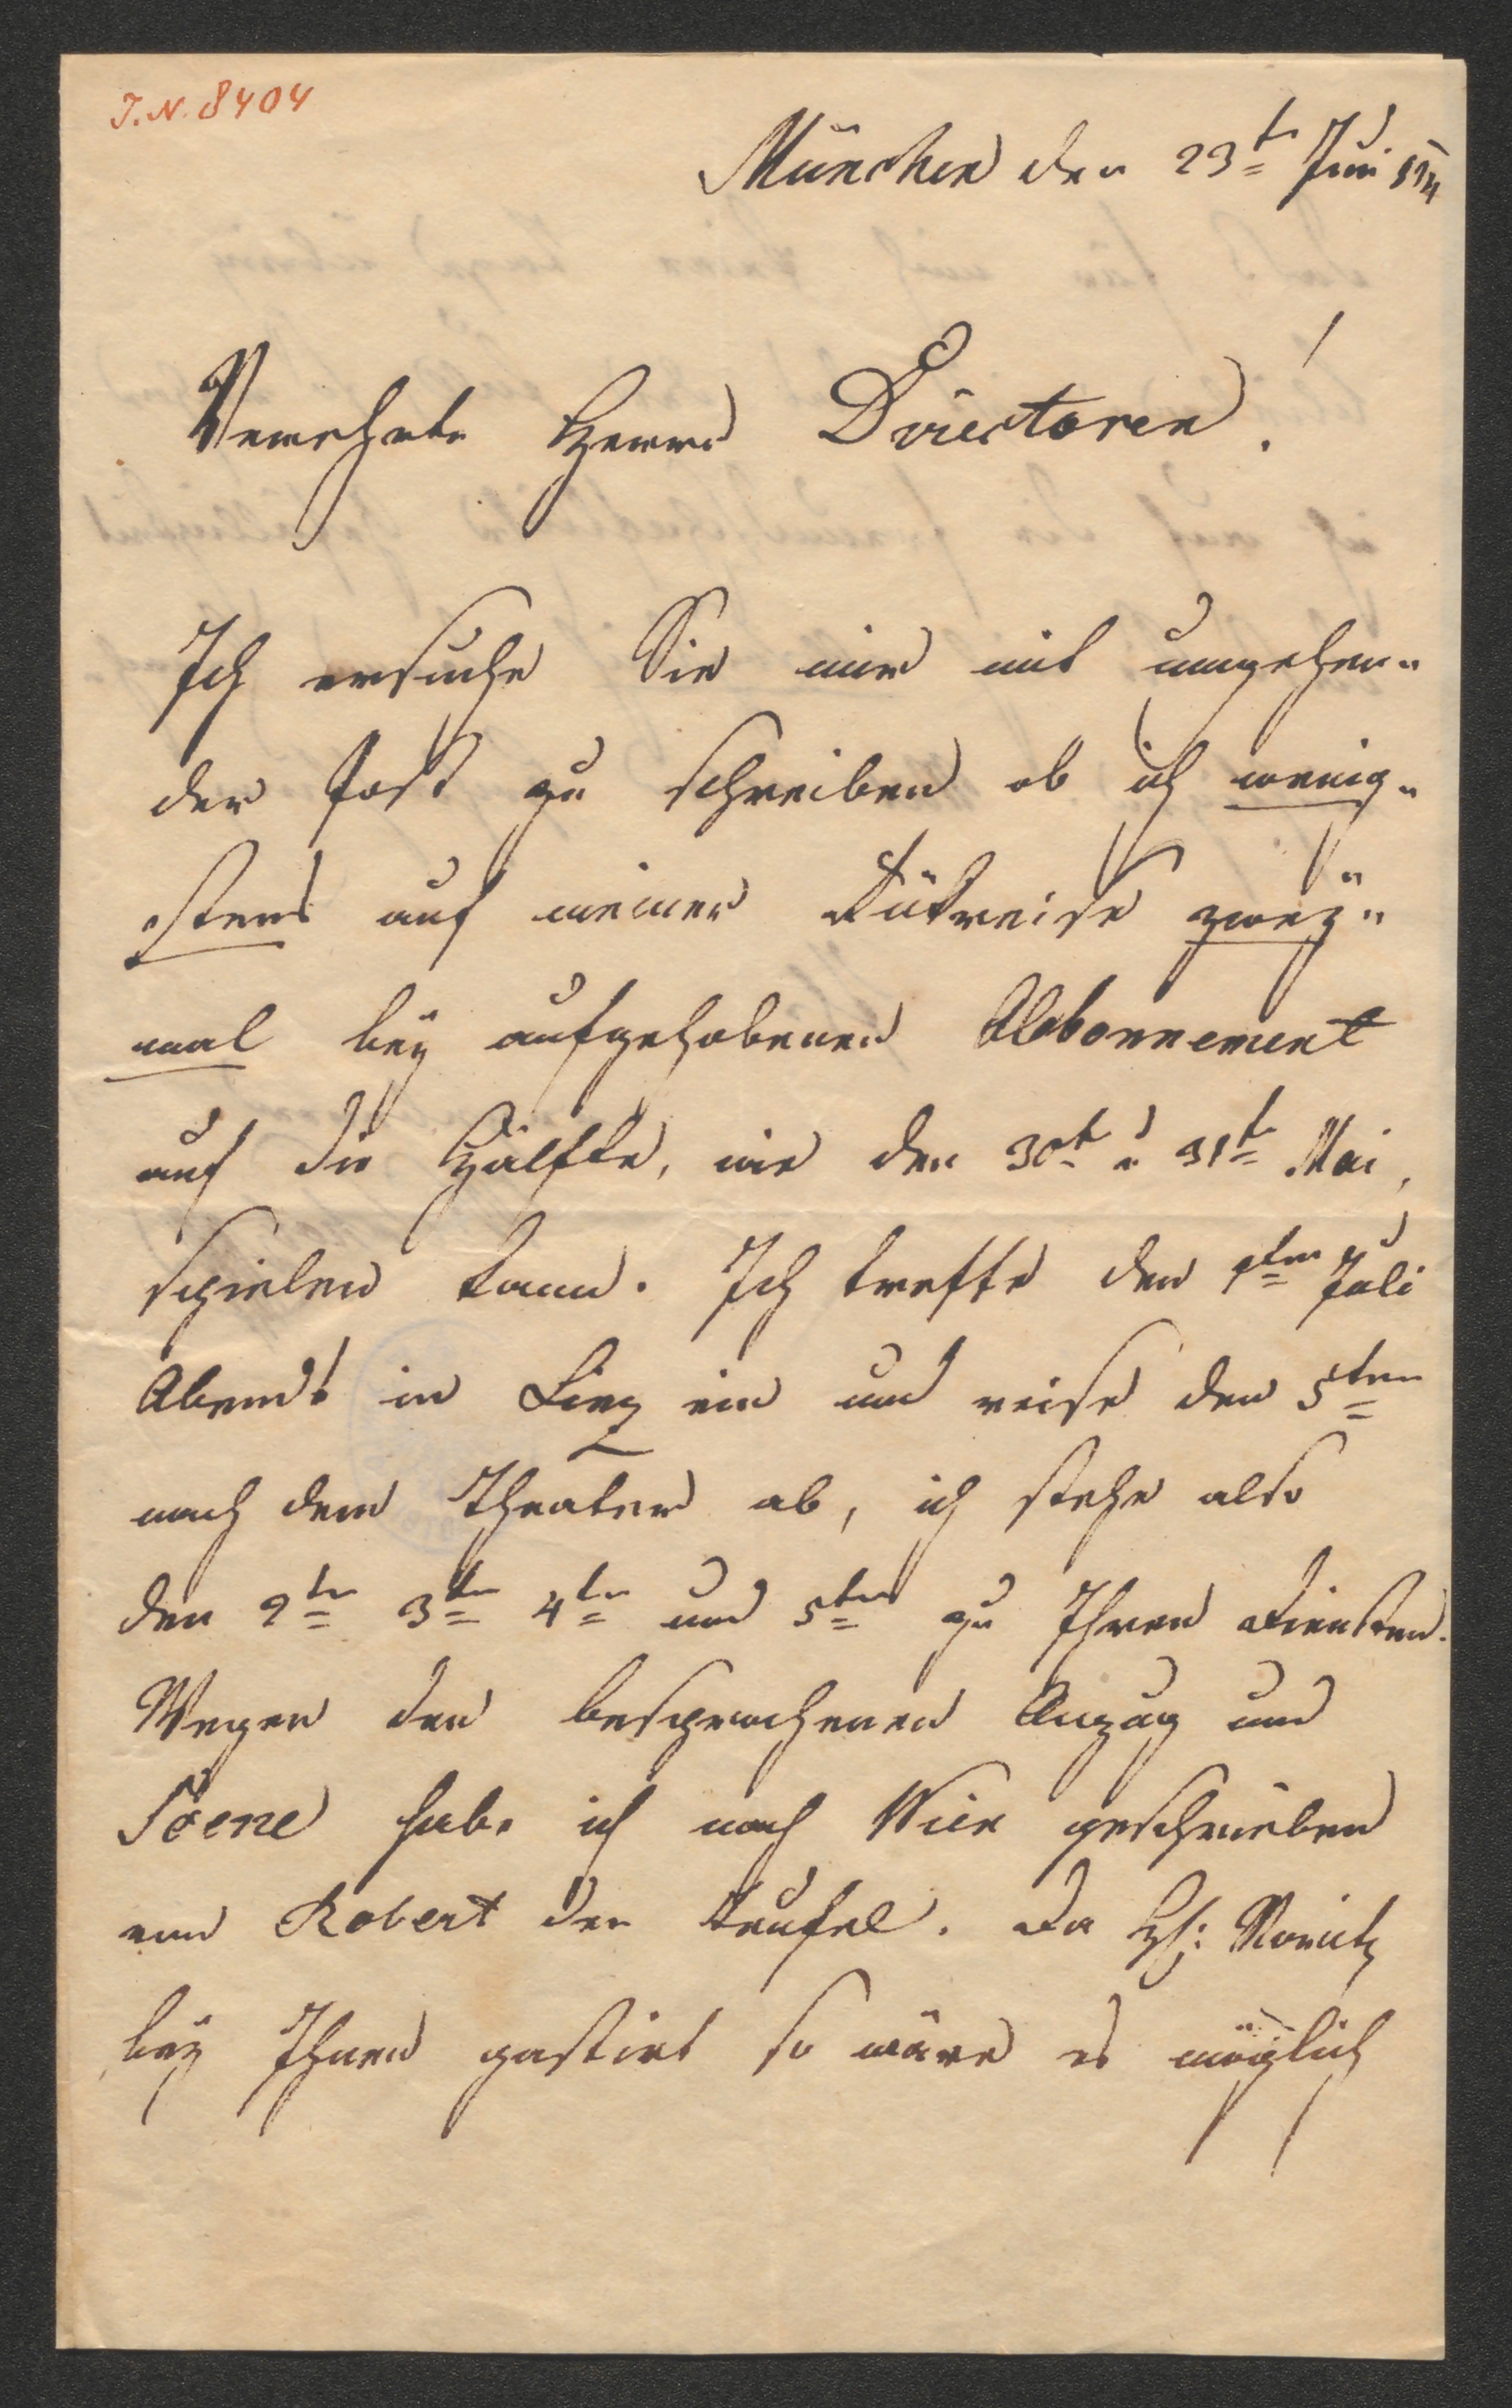 I.N. 8404
München den 23t Juni
Verehrte Herrn Directoren!
Ich ersuche Sie mir mit umgehen-
der Post zu schreiben ob ich wenig-
stens auf meiner Rükreise zwey-
mal bey aufgehobenen Abbonnement
auf die Hälfte, wie den 30t u 31t Mai,
spielen kann. Ich treffe den 1ten Juli
Abends in Linz ein und reise den 5ten
nach dem Theater ab, ich stehe also
den 2tn 3tn 4tn und 5ten zu Ihren Diensten.
Wegen den besprochenen Anzug und
Scene habe ich nach Wien geschrieben
von Robert der Teufel. Da H: Moritz
bey Ihnen gastirt so wäre es möglich